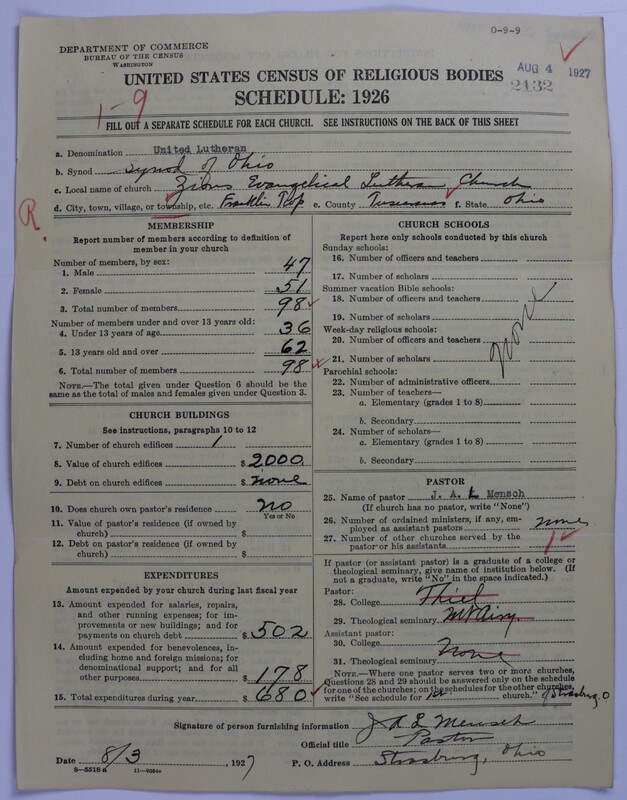 0-9-9
DEPARTMENT OF COMMERCE
BUREAU OF THE CENSUS
WASHINGTON
AUG 4 1927
2132
UNITED STATES CENSUS OF RELIGIOUS BODIES
SCHEDULE: 1926
1-9
FILL OUT A SEPARATE SCHEDULE FOR EACH CHURCH. SEE INSTRUCTIONS ON THE BACK OF THIS SHEET
a. Denomination United Lutheran
b. Synod Synod of Ohio
c. Local name of church Zions Evangelical Lutheran Church
d. City, town, village, or township, etc. Franklin Twp e. County Tuscarawas f. State Ohio
R.
MEMBERSHIP
Report number of members according to definition of
member in your church
Number of members, by sex:
1. Male 47
2. Female 51
3. Total number of members 98
Number of members under and over 13 years old:
4. Under 13 years of age 36
5. 13 years old and over 62
6. Total number of members 98
NOTE.—The total given under Question 6 should be
same as the total of males and females given under Question 3.
CHURCH BUILDINGS
See instructions, paragraphs 10 to 12
7. Number of church edifices 1
8. Value of church edifices $ 2000.
9. Debt on church edifices $ none
10. Does church own pastor's residence No
Yes or No
11. Value of pastor's residence (if owned by
church) $
12. Debt on pastor's residence (if owned by
church) $
EXPENDITURES
Amount expended by your church during last fiscal year
13. Amount expended for salaries, repairs,
and other running expenses; for im-
provements or new buildings; and for
payments on church debt $ 502
14. Amount expended for benevolences, in-
cluding home and foreign missions; for
denominational support; and for all
other purposes $ 178
15. Total expenditures during year $ 680
CHURCH SCHOOLS
Report here only schools conducted by this church
Sunday schools:
16. Number of officers and teachers
17. Number of scholars
Summer vacation Bible schools:
18. Number of officers and teachers
19. Number of scholars
Week-day religious schools:
20. Number of officers and teachers
21. Number of scholars
none
Parochial schools:
22. Number of administrative officers
23. Number of teachers—
a. Elementary (grades 1 to 8)
b. Secondary
24. Number of scholars—
a. Elementary (grades 1 to 8)
b. Secondary
PASTOR
25. Name of pastor J. A. L Mensch
(If church has no pastor, write "None")
26. Number of ordained ministers, if any, em-
ployed as assistant pastors none
27. Number of other churches served by the
pastor or his assistants 1
If pastor (or assistant pastor) is a graduate of a college or
theological seminary, give name of institution below. (If
not a graduate, write "No" in the space indicated.)
Pastor:
28. College Thiel
29. Theological seminary Mt Airy
Assistant pastor:
30. College
None
31. Theological seminary
NOTE.—Where one pastor serves two or more churches,
Questions 28 and 29 should be answered only on the schedule
for one of the churches; on the schedules for the other churches,
write "See schedule for 1st church." of Strasburg, O
Signature of person furnishing information J A L Mensch
Official title Pastor
Date 8/3, 1927 P. O. Address Strasburg, Ohio
8-5518 a